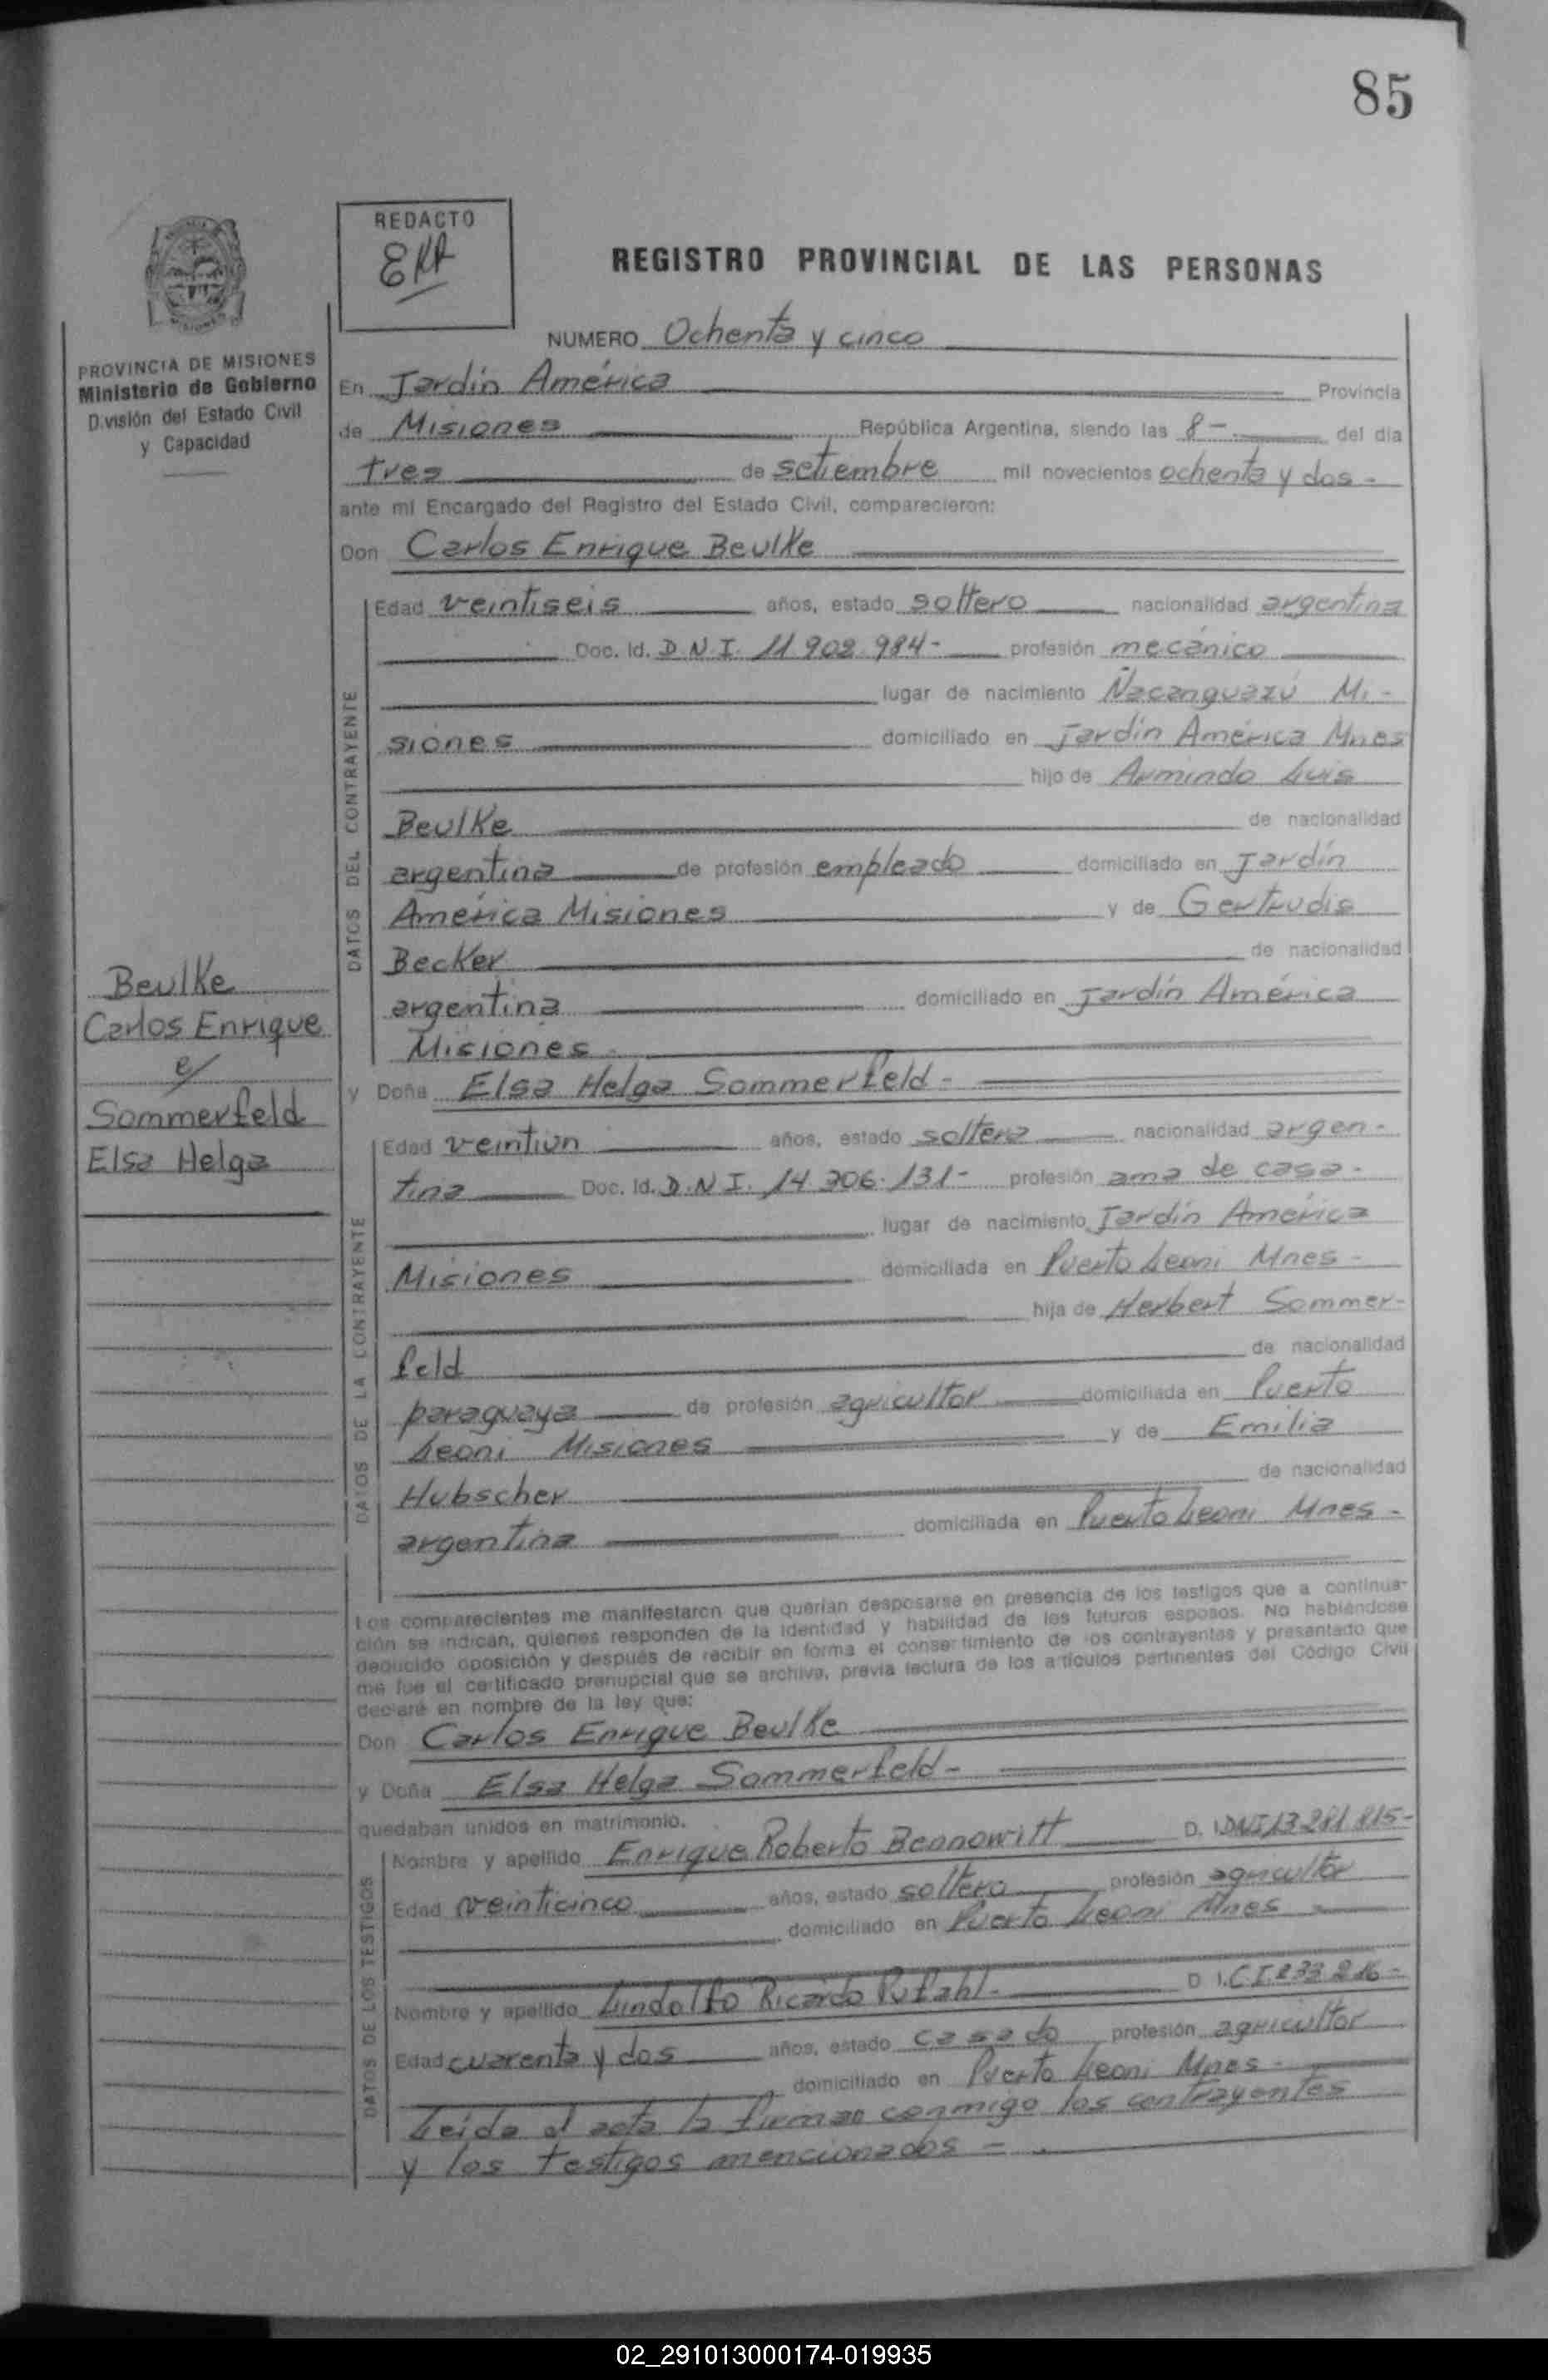 85
REDACTO
EKA
REGISTRO PROVINCIAL DE LAS PERSONAS
PROVINCIA DE MISIONES
Ministerio de Gobierno
División del Estado Civil
y Capacidad
NUMERO Ochenta y cinco
En Jardín América Provincia
de Misiones República Argentina, siendo las 8- del día
tres de setiembre mil novecientos ochenta y dos -
ante mi Encargado del Registro del Estado Civil, comparecieron:
Don Carlos Enrique Beulke
DATOS DEL CONTRAYENTE
Edad veintiseis años, estado soltero nacionalidad argentina
Doc. Id. D.N.I. 11 902 984- profesión mecánico
lugar de nacimiento Ñacanguazú Mi-
siones domiciliado en Jardín América Mnes
hijo de Armindo Luis
Beulke de nacionalidad
argentina de profesión empleado domiciliado en Jardín
América Misiones y de Gertrudis
Becker de nacionalidad
argentina domiciliado en Jardín América
Misiones
Beulke
Carlos Enrique
e/
Sommerfeld
Elsa Helga
y Doña Elsa Helga Sommerfeld -
DATOS DE LA CONTRAYENTE
Edad veintiun años, estado soltera nacionalidad argen-
tina Doc. Id. D.N.I. 14.306.131- profesión ama de casa -
lugar de nacimiento Jardín América
Misiones domiciliada en Puerto Leoni Mnes -
hija de Herbert Sommer-
feld de nacionalidad
paraguaya de profesión agricultor domiciliada en Puerto
Leoni Misiones y de Emilia
Hubscher de nacionalidad
argentina domiciliada en Puerto Leoni Mnes -
Los comparecientes me manifestaron que querían desposarse en presencia de los testigos que a continua-
ción se indican, quienes responden de la identidad y habilidad de los futuros esposos. No habiéndose
deducido oposición y después de recibir en forma el consentimiento de los contrayentes y presentado que
me fue el certificado prenupcial que se archiva, previa lectura de los artículos pertinentes del Código Civil
declaré en nombre de la ley que:
Don Carlos Enrique Beulke
y Doña Elsa Helga Sommerfeld -
quedaban unidos en matrimonio.
DATOS DE LOS TESTIGOS
Nombre y apellido Enrique Roberto Bennowitt D. I. DNI 13 281 815-
Edad veinticinco años, estado soltero profesión agricultor
domiciliado en Puerto Leoni Mnes -
Nombre y apellido Lindolfo Ricardo Pufahl - D. I. C.I. 233 216 -
Edad cuarenta y dos años, estado casado profesión agricultor
domiciliado en Puerto Leoni Mnes -
Leida el acta la firman conmigo los contrayentes
y los testigos mencionados -
02_291013000174-019935